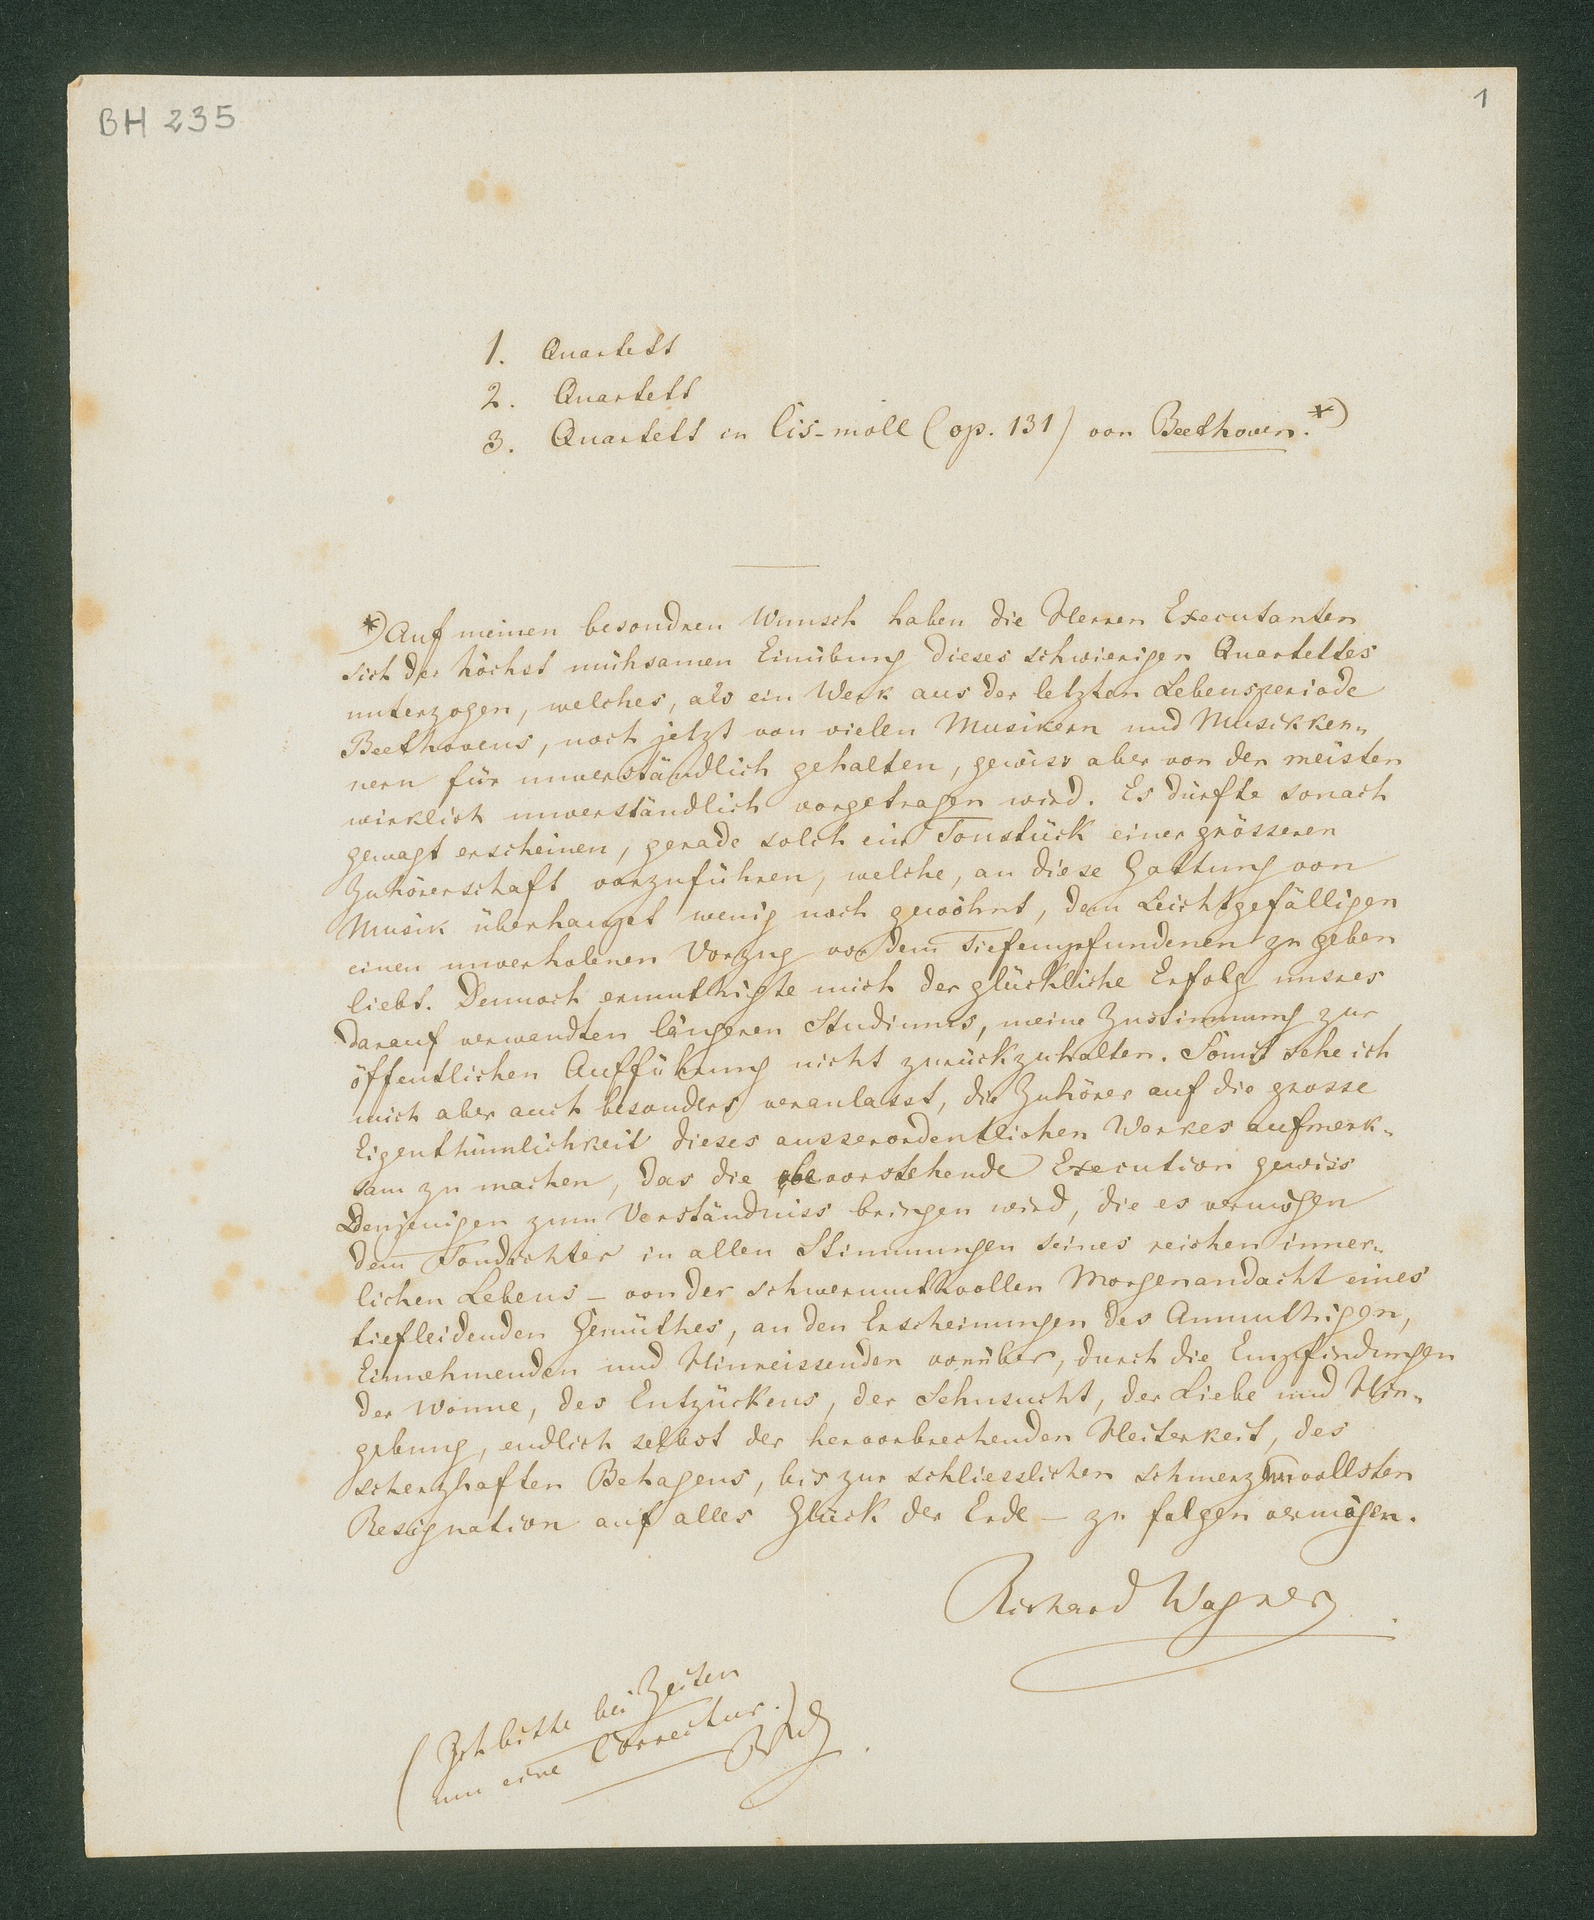 BH 235
1
1. Quartett
2. Quartett
3. Quartett in Cis-moll (op. 131) von Beethoven.*)
*) Auf meinen besondren Wunsch haben die Herren Executanten
sich der höchst mühsamen Einübung dieses schwierigen Quartettes
unterzogen, welches, als ein Werk aus der letzten Lebensperiode
Beethovens, noch jetzt von vielen Musikern und Musikken-
nern für unverständlich gehalten, gewiss aber von den meisten
wirklich unverständlich vorgetragen wird. Es dürfte sonach
gewagt erscheinen, gerade solch ein Tonstück einer grösseren
Zuhörerschaft vorzuführen, welche, an diese Gattung von
Musik überhaupt wenig noch gewöhnt, dem Leichtgefälligen
einen unverholenen Vorzug vor dem Tiefempfundenen zu geben
liebt. Dennoch ermuthigte mich der glückliche Erfolg unsres
darauf verwendten längeren Studiums, meine Zustimmung zur
öffentlichen Aufführung nicht zurückzuhalten. Somit sehe ich
mich aber auch besonders veranlasst, die Zuhörer auf die grosse
Eigenthümlichkeit dieses ausserordentlichen Werkes aufmerk-
sam zu machen, das die bevorstehende Execution gewiss
Denjenigen zum Verständniss bringen wird, die es vermögen
dem Tondichter in allen Stimmungen seines reichen inner-
lichen Lebens – von der schwermuthvollen Morgenandacht eines
tiefleidenden Gemüthes, an den Erscheinungen des Anmuthigen,
Einnehmenden und Hinreissenden vorüber, durch die Empfindungen
der Wonne, des Entzückens, der Sehnsucht, der Liebe und Hin-
gebung, endlich selbst der hervorbrechenden Heiterkeit, des
scherzhaften Behagens, bis zur schliesslichen schmerzenvollsten
Resignation auf alles Glück der Erde – zu folgen vermögen.
Richard Wagner
(Ich bitte bei Zeiten
um eine Correctur.)